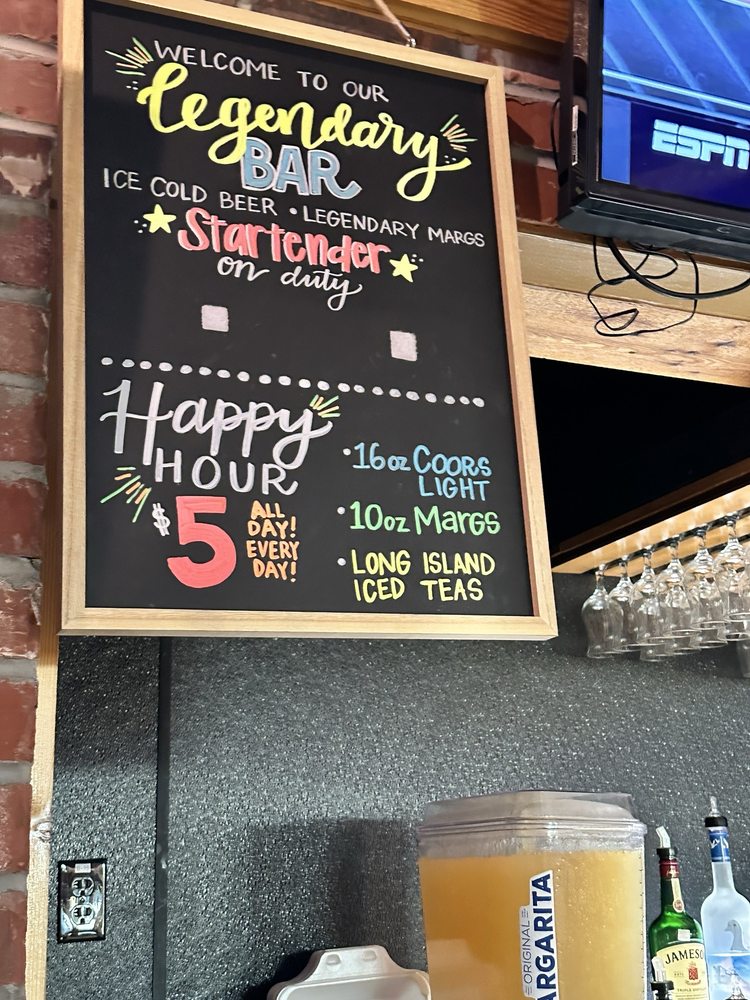 WELCOME TO OUR
legendary
BAR
ICE COLD BEER • LEGENDARY MARGS
Startender
on duty
Happy
HOUR
$5
ALL
DAY!
EVERY
DAY!
• 16oz COORS
LIGHT
• 10oz MARGS
• LONG ISLAND
ICED TEAS
ESPN
ORIGINAL
ARGARITA
JAMES